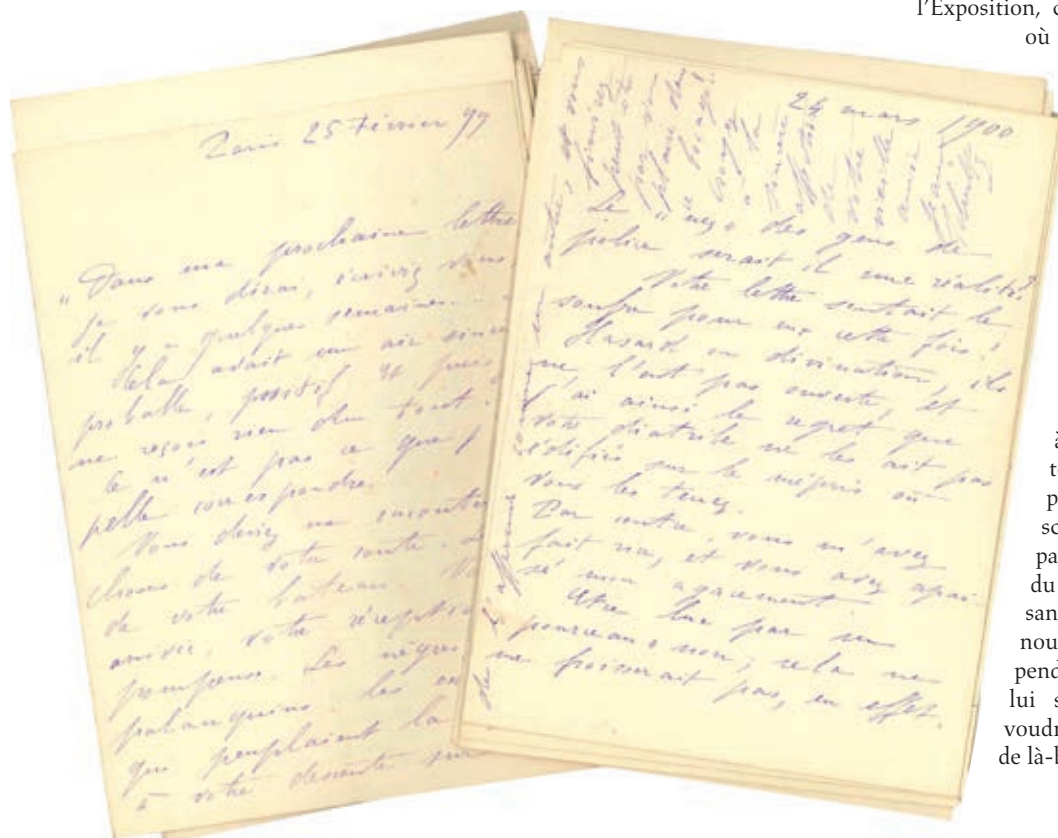 l'Exposition,
où
Paris 25 février 99
" Dans ma prochaine lettre
je vous dirai, écriviez vous,
il y a quelques semaines.
Cela avait un air
probable, positif et puis
ne reçois rien du tout.
Ce n'est pas ce que j
pelle correspondre.
Vous deviez me raconter
choses de votre route.
de votre bateau.
arrivée, votre réception
pompeuse. Les nègres
palanquins les
qui peuplaient la
à votre descente sur
24 mars 1900
Le " nez " des gens de
police serait il une réalité?
Votre lettre sentait le
soufre pour eux cette fois!
Hasard ou divination, ils
ne l'ont pas ouverte, et
j'ai ainsi le regret que
votre diatribe ne les ait pas
édifiés sur le mépris où
vous les tenez.
Par contre, vous m'avez
fait rire, et vous avez apai-
sé mon agacement.
Être lue par un
pourceau, non, cela ne
me froisserait pas, en effet.
et vous
par
plaire dans
ce bocage!
croyez
à la
sincère
affection
de
votre
vieille
amie
à
te
p
sc
pa
du
san
nou
pend
lui s
voudr
de là-b